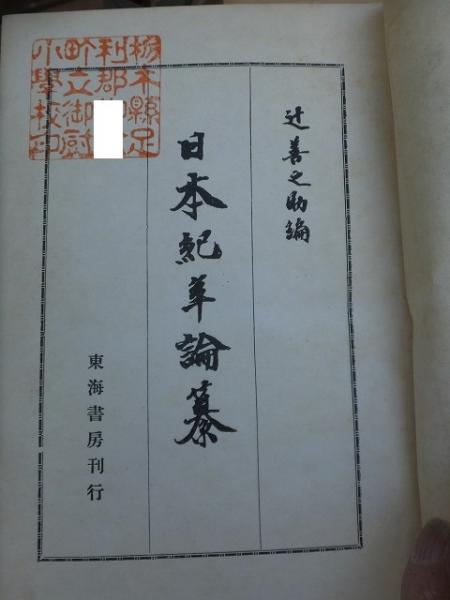 辻善之助編
日本紀年論纂
東海書房刊行
栃木縣足
利郡
町立御厨
小學校印